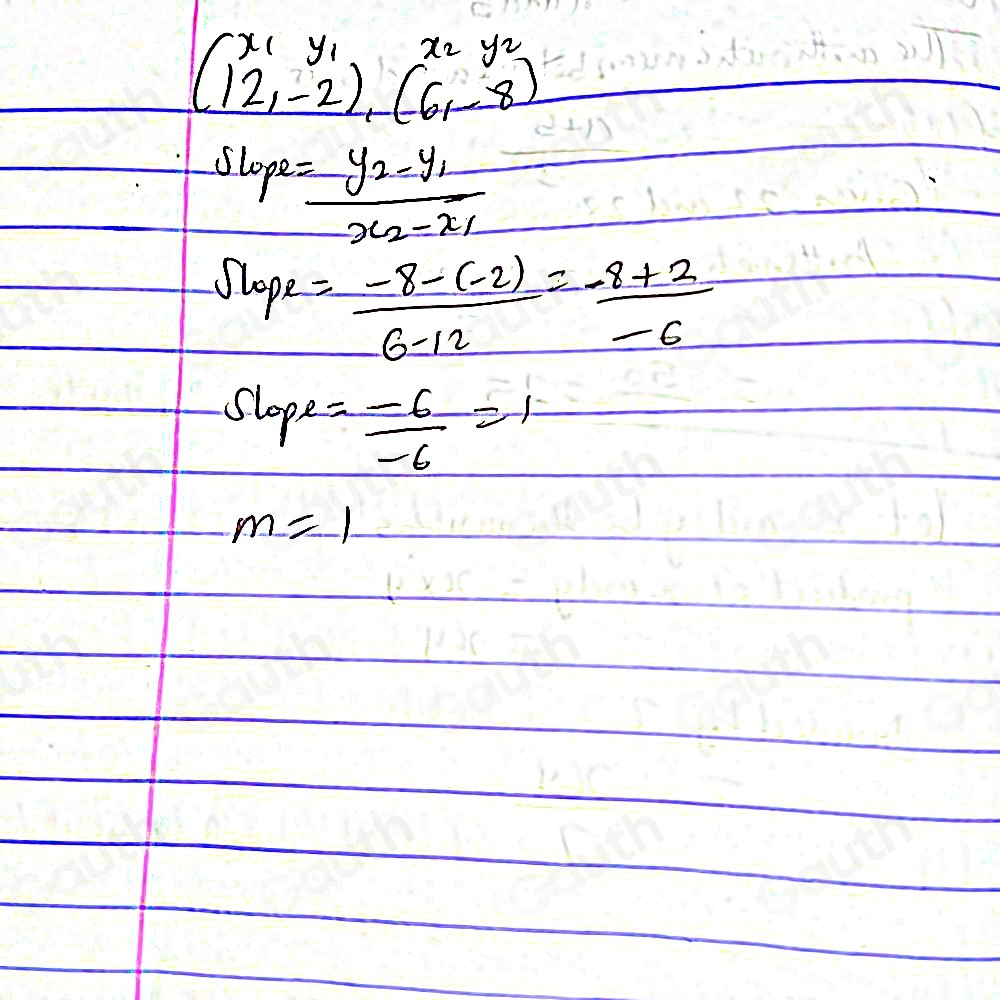 x1 y1 x2 y2
(12, -2), (6, -8)
Slope = y2 - y1 / x2 - x1
Slope = -8 - (-2) / 6 - 12 = -8 + 2 / -6
Slope = -6 / -6 = 1
m = 1